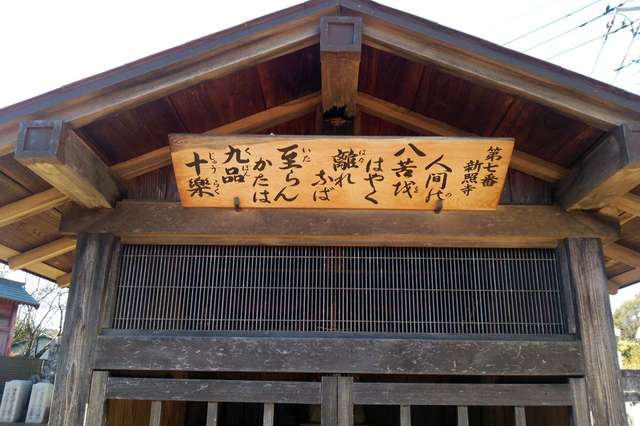 第七番
新照寺
人間の
八苦越
はやく
離れ
なば
至らん
かたは
九品
十樂